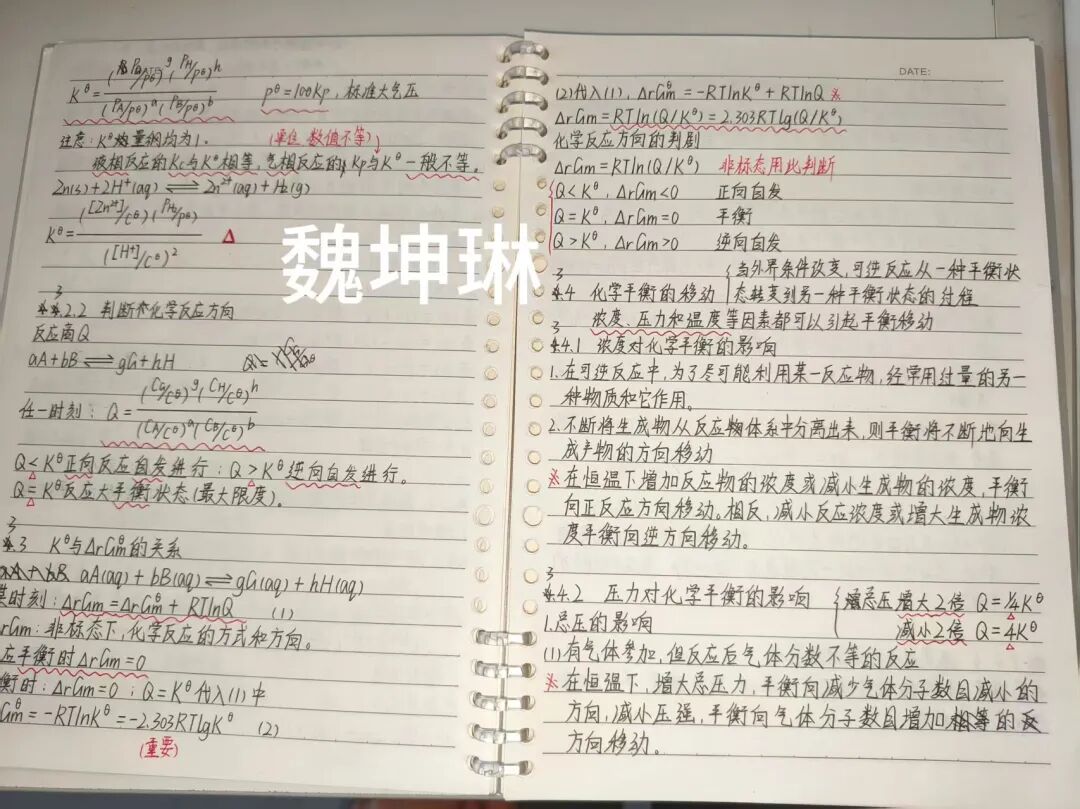 K^θ = (P_G/p^θ)^g (P_H/p^θ)^h / (P_A/p^θ)^a (P_B/p^θ)^b p^θ=100Kp,标准大气压
注意:K^θ 量纲均为1。(单位、数值不等)
液相反应的Kc与K^θ相等,气相反应的Kp与K^θ一般不等。
Zn(s)+2H⁺(aq) ⇌ Zn²⁺(aq)+H₂(g)
K^θ = ([Zn²⁺]/c^θ)(P_H₂/p^θ) / ([H⁺]/c^θ)² Δ
魏坤琳
3
4.2.2 判断化学反应方向
反应商Q
aA+bB ⇌ gG+hH
任一时刻:Q = (C_G/c^θ)^g (C_H/c^θ)^h / (C_A/c^θ)^a (C_B/c^θ)^b
Q<K^θ正向反应自发进行;Q>K^θ逆向自发进行。
Q=K^θ反应大平衡状态(最大限度)。
3
4.3 K^θ与ΔrGm^θ的关系
aA+bB aA(aq)+bB(aq) ⇌ gG(aq)+hH(aq)
某时刻:ΔrGm=ΔrGm^θ+RTlnQ (1)
rGm:非标态下,化学反应的方式和方向。
应平衡时ΔrGm=0
衡时:ΔrGm=0;Q=K^θ代入(1)中
Gm^θ=-RTlnK^θ=-2.303RTlgK^θ (2)
(重要)
DATE:
(2)代入(1),ΔrGm=-RTlnK^θ+RTlnQ ※
ΔrGm=RTln(Q/K^θ)=2.303RTlg(Q/K^θ)
化学反应方向的判剧
ΔrGm=RTln(Q/K^θ) 非标态用此判断
Q<K^θ,ΔrGm<0 正向自发
Q=K^θ,ΔrGm=0 平衡
Q>K^θ,ΔrGm>0 逆向自发
3
4.4 化学平衡的移动 {当外界条件改变,可逆反应从一种平衡状
态转变到另一种平衡状态的过程
浓度、压力和温度等因素都可以引起平衡移动
3
4.4.1 浓度对化学平衡的影响
1.在可逆反应中,为了尽可能利用某一反应物,经常用过量的另一
种物质和它作用。
2.不断将生成物从反应物体系中分离出来,则平衡将不断地向生
成产物的方向移动
※在恒温下增加反应物的浓度或减小生成物的浓度,平衡
向正反应方向移动。相反,减小反应浓度或增大生成物浓
度平衡向逆方向移动。
3
4.4.2 压力对化学平衡的影响 {总压增大2倍 Q=1/4K^θ
1.总压的影响 减小2倍 Q=4K^θ
(1)有气体参加,但反应后气体分数不等的反应
※在恒温下,增大总压力,平衡向减少气体分子数目减小的
方向,减小压强,平衡向气体分子数目增加相等的反
方向移动。